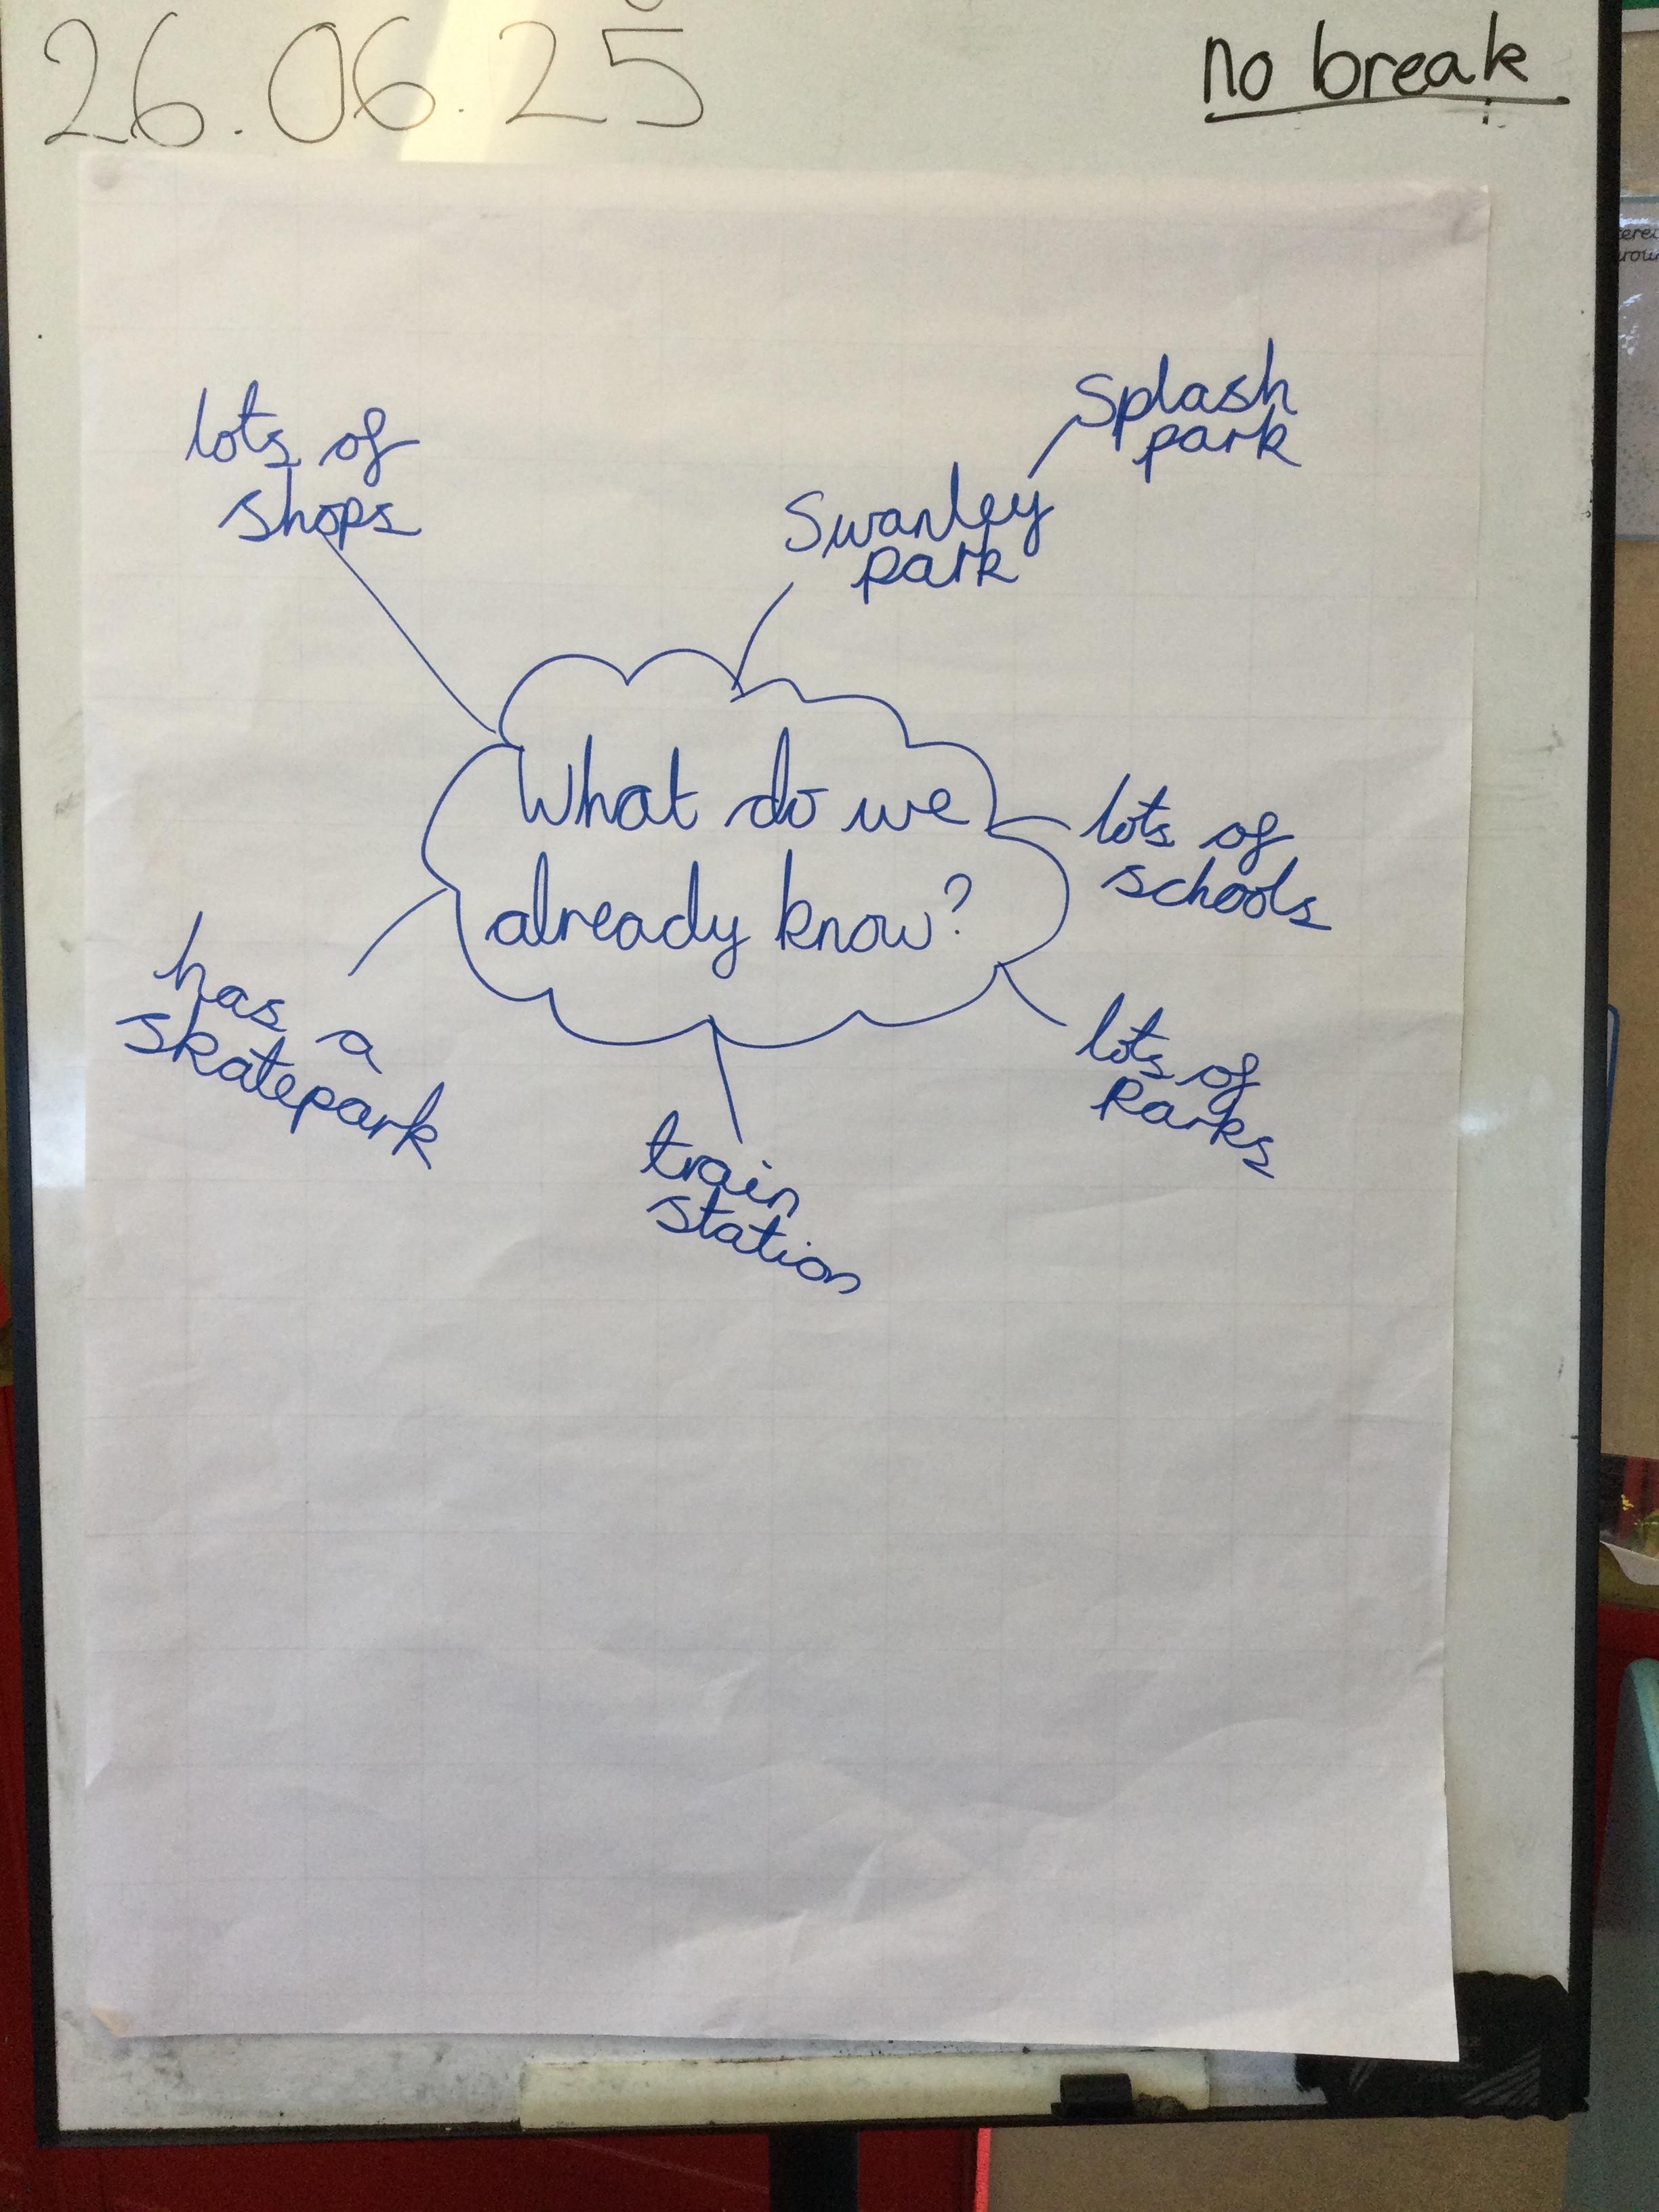 26.06.25
no break
lots of
shops
Splash
park
Swanley
park
What do we
already know?
lots of
schools
has a
skatepark
lots of
Parks
train
station